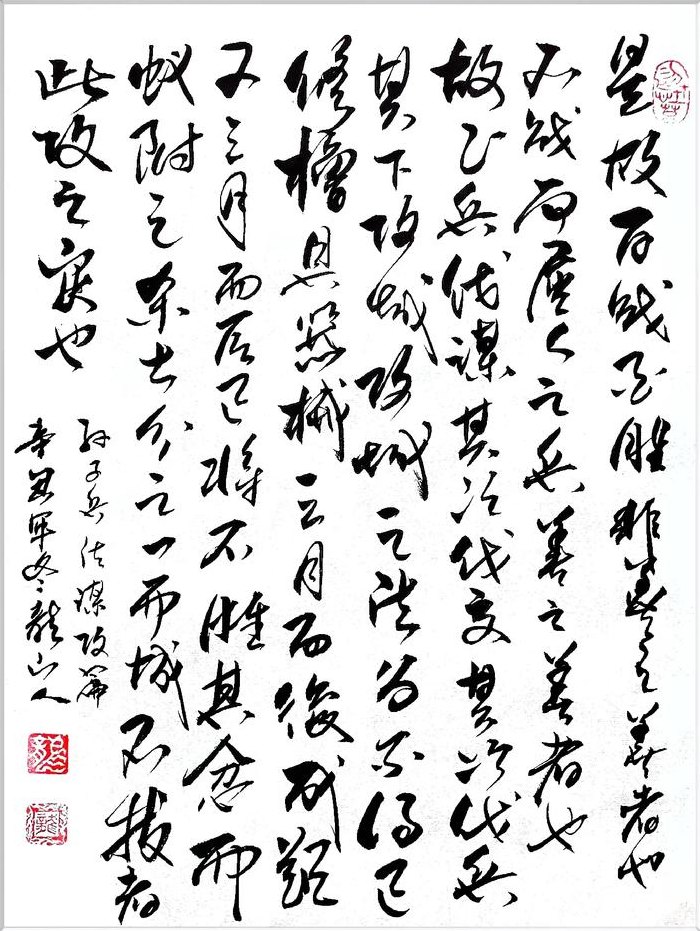 是故百戰百胜非善之善者也
不戰而屈人之兵善之善者也
故上兵伐謀其次伐交其次伐兵
其下攻城攻城之法为不得已
修櫓具器械三月而後成距
又三月而后已將不胜其忿而
蚁附之杀士分之一而城不拔者
此攻之灾也
孙子兵法謀攻篇
辛卯年冬龍山人